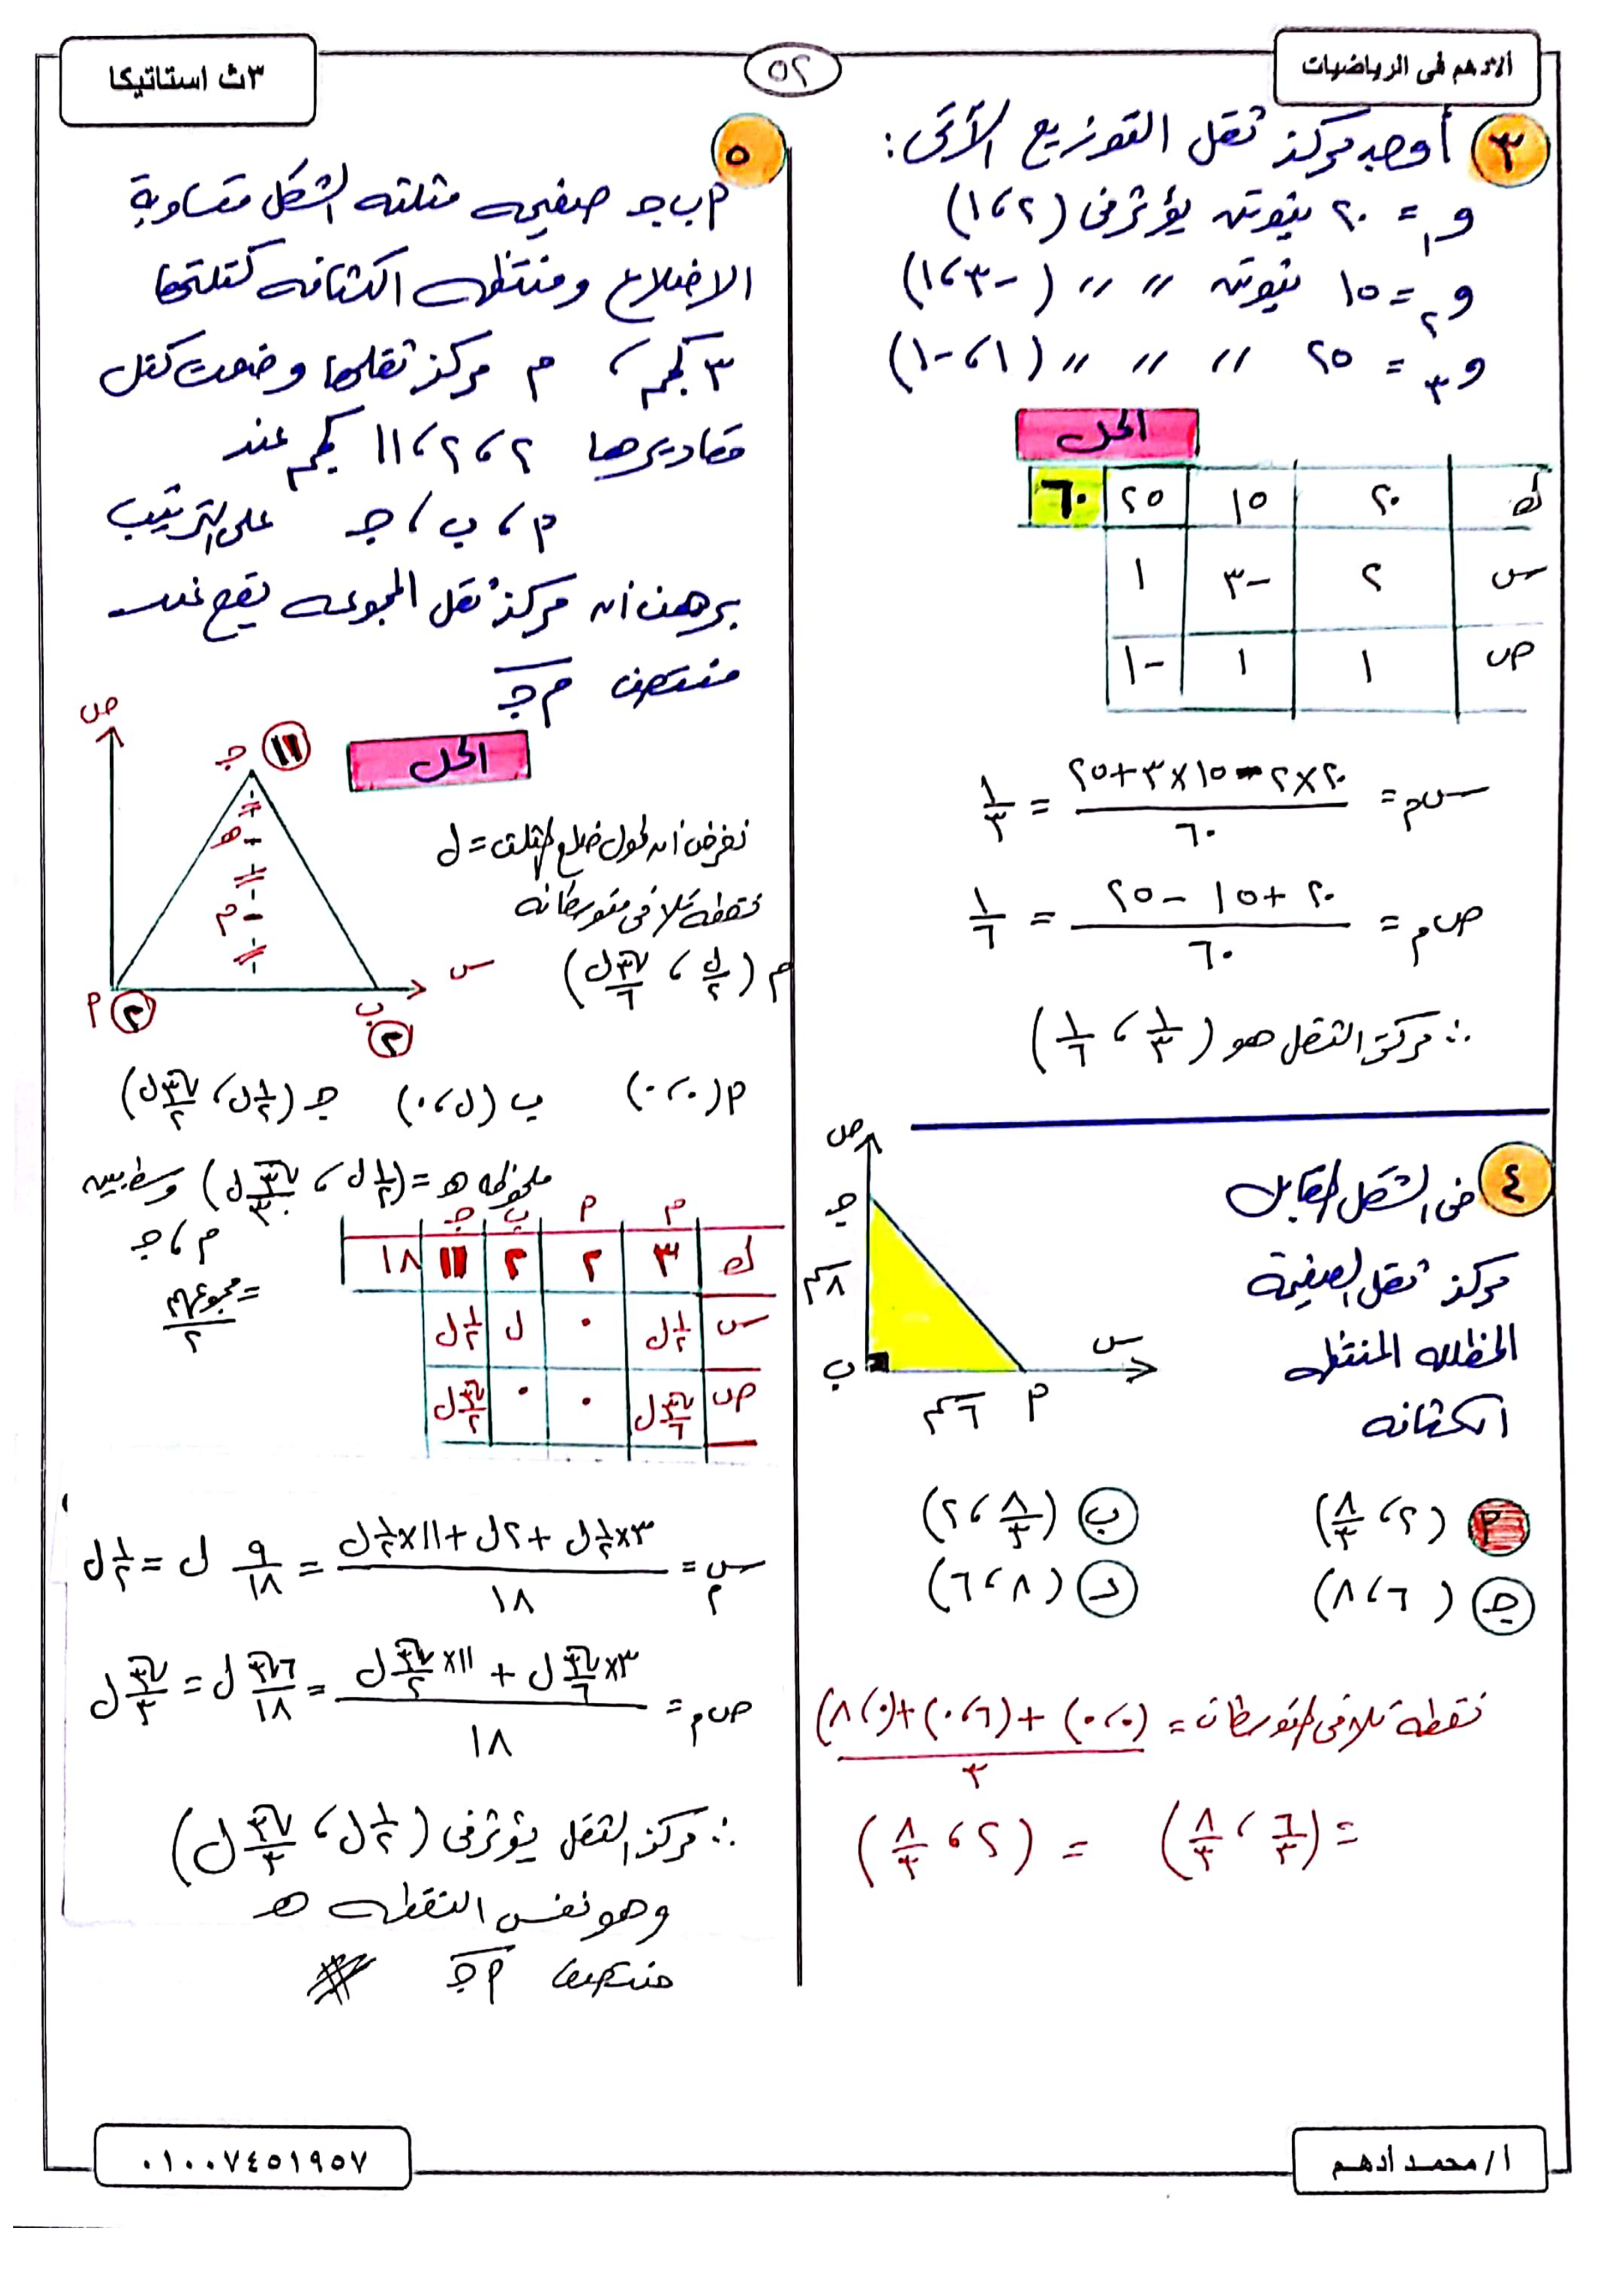 ألادهم فى الرياضيات
٥٢
٣ث استاتيكا
٣ أوجد مركز ثقل التوزيع الآتى :
و١ = ٢٠ نيوتن يؤثر فى (٢ ، ١)
و٢ = ١٥ نيوتن // // (-٣ ، ١)
و٣ = ٢٥ // // // (١ ، -١)
الحل
ك ٢٠ ١٥ ٢٥ ٦٠
س ٢ -٣ ١
ص ١ ١ -١
س م = (٢٠×٢ - ١٥×٣ + ٢٥) / ٦٠ = ١/٣
ص م = (٢٠ + ١٥ - ٢٥) / ٦٠ = ١/٦
∴ مركز الثقل هو (١/٣ ، ١/٦)
٤ فى الشكل المقابل
مركز ثقل الصفيحة
المظلله المنتظمه
الكثافه
ص
جـ
٨سم
ب
٦سم
م
س
م (٢ ، ٨/٣)
ب (٨/٣ ، ٢)
جـ (٦ ، ٨)
د (٨ ، ٦)
نقطة تلاقى المتوسطات = ((٠،٠) + (٦،٠) + (٠،٨)) / ٣
= (٦/٣ ، ٨/٣) = (٢ ، ٨/٣)
٥
م ب جـ صفيحه مثلثه الشكل متساوية
الاضلاع ومنتظمه الكثافه كتلتها
٣ كجم ، م مركز ثقلها وضعت كتل
مقاديرها ٢ ، ٢ ، ١١ كجم عند
م ، ب ، جـ على الترتيب
برهن أن مركز ثقل المجموعه يقع عند
منتصف م جـ
الحل
ص
جـ ١١
هـ
م
م ٢
ب ٢
س
نفرض أن طول ضلع المثلث = ل
نقطة تلاقى متوسطاته
م (ل/٢ ، √٣/٦ ل)
م (٠،٠) ب (ل،٠) جـ (١/٢ ل ، √٣/٢ ل)
ملحوظه هـ = (١/٢ ل ، √٣/٣ ل) وسط بين
م ، جـ
= مجموعهم / ٢
م م ب جـ
ك ٣ ٢ ٢ ١١ ١٨
س ١/٢ ل ٠ ل ١/٢ ل
ص √٣/٦ ل ٠ ٠ √٣/٢ ل
س م = (٣×١/٢ ل + ٢ل + ١١×١/٢ ل) / ١٨ = ٩/١٨ ل = ١/٢ ل
ص م = (٣×√٣/٦ ل + ١١×√٣/٢ ل) / ١٨ = ٦√٣/١٨ ل = √٣/٣ ل
∴ مركز الثقل يؤثر فى (١/٢ ل ، √٣/٣ ل)
وهو نفس النقطه هـ
منتصف م جـ #
أ / محمد أدهم
٠١٠٠٧٤٥١٩٥٧